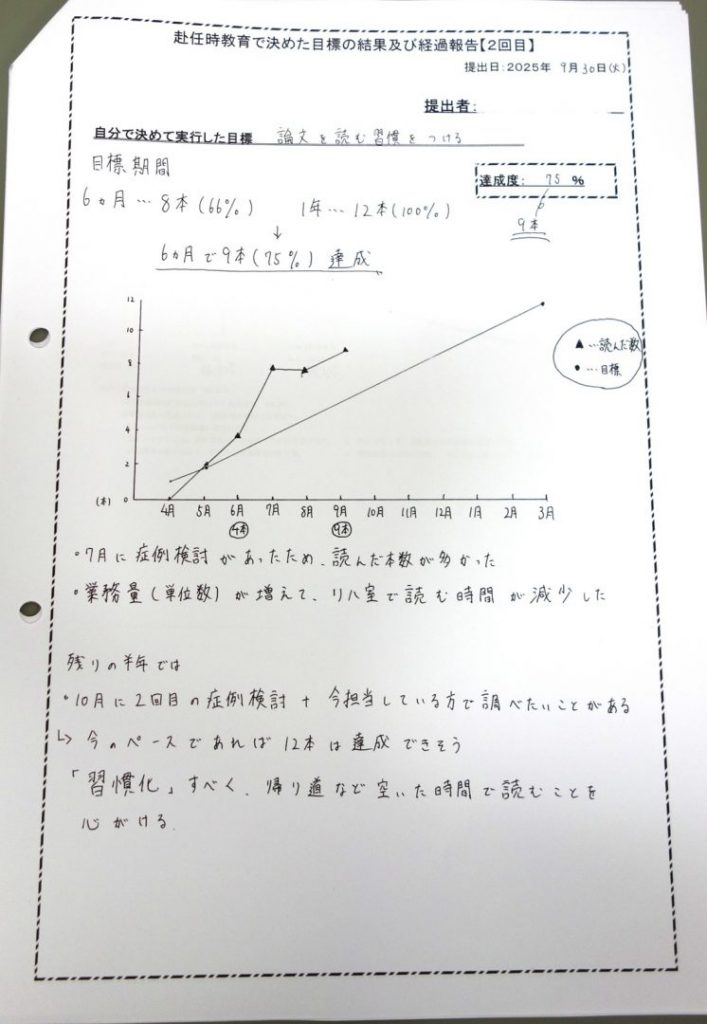 赴任時教育で決めた目標の結果及び経過報告【2回目】
提出日:2025年 9月30日(火)
提出者:
自分で決めて実行した目標 論文を読む習慣をつける
目標期間
達成度: 75 %
6ヵ月…8本(66%) 1年…12本(100%)
9本
↓
6ヵ月で9本(75%)達成
12
10
8
6
4
2
0
(本)
▲…読んだ数
•…目標
4月 5月 6月 7月 8月 9月 10月 11月 12月 1月 2月 3月
4本 9本
・7月に症例検討があったため、読んだ本数が多かった
・業務量(単位数)が増えて、リハ室で読む時間が減少した
残りの半年では
・10月に2回目の症例検討 + 今担当している方で調べたいことがある
↳ 今のペースであれば12本は達成できそう
「習慣化」すべく、帰り道など空いた時間で読むことを
心がける.